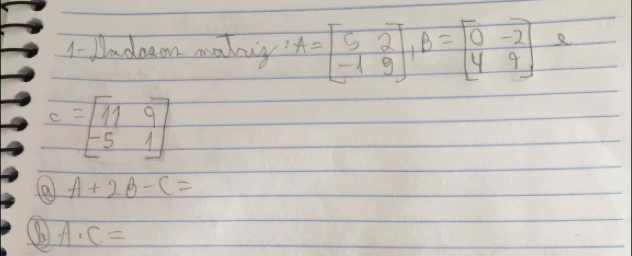 1- Dadas as matriz: A = [5 2; -1 9], B = [0 -2; 4 7] e
C = [11 9; -5 1]
a) A + 2B - C =
b) A · C =